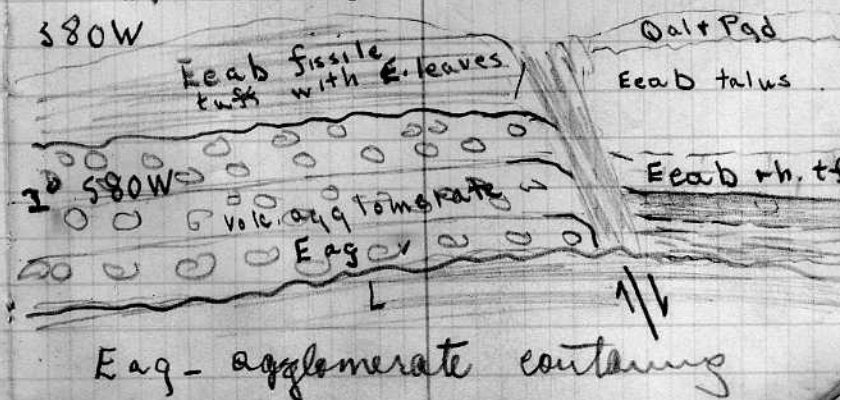 S80W
Qal + Pgd
Eeab fissile
tuff with E. leaves
Eeab talus
Eeab rh. tf
1° S80W
volc. agglomerate
Eag
L
Eag - agglomerate containing